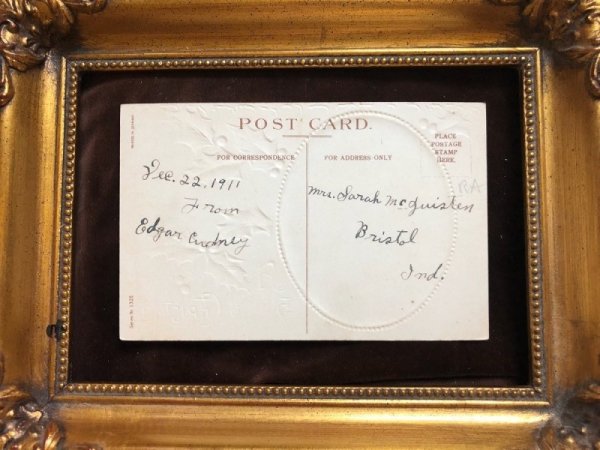 POST CARD.
FOR CORRESPONDENCE
FOR ADDRESS ONLY
PLACE
POSTAGE
STAMP
HERE.
Dec. 22, 1911
From
Edgar Cudney
Mrs. Sarah McQuisten
Bristol
Ind.
RA